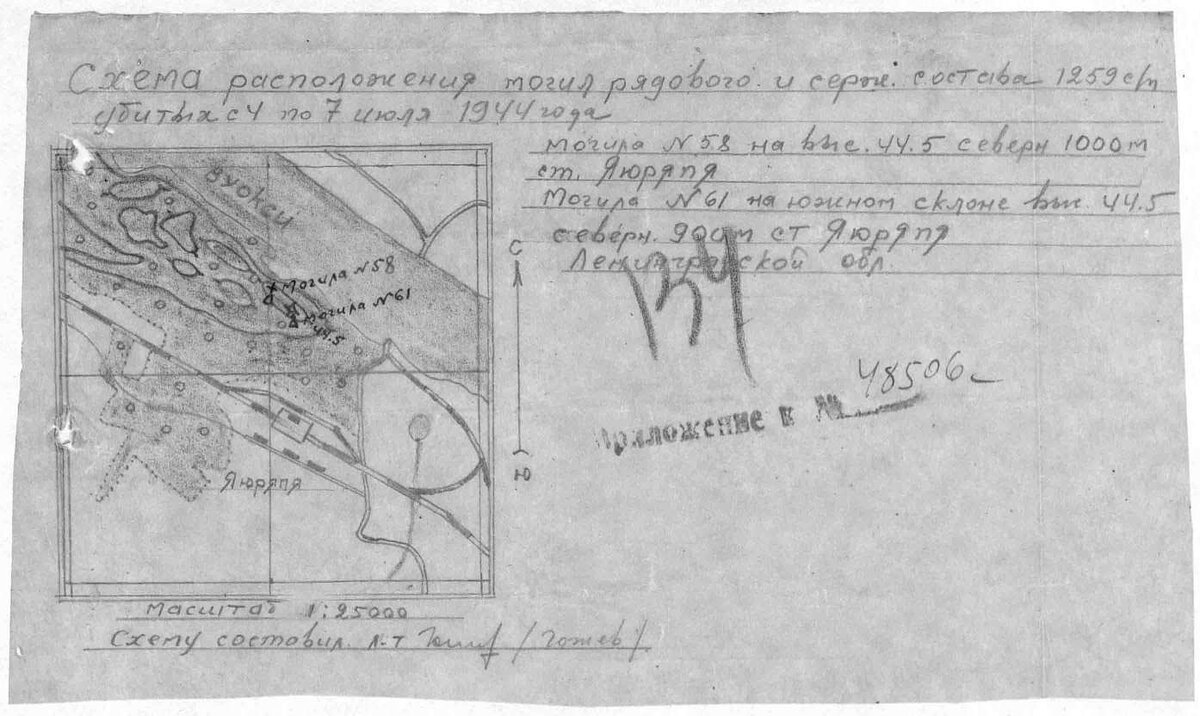 Схема расположения могил рядового и серж. состава 1259 с/п
убитых с 4 по 7 июля 1944 года
могила №58 на выс. 44.5 северн 1000 м
ст. Яюряпя
Могила №61 на южном склоне выс. 44.5
северн. 900 м ст Яюряпя
Ленинградской обл.
Вуокси
могила №58
могила №61
44.5
С
Ю
134
Приложение к № 48506
Яюряпя
Масштаб 1:25000
Схему составил л-т